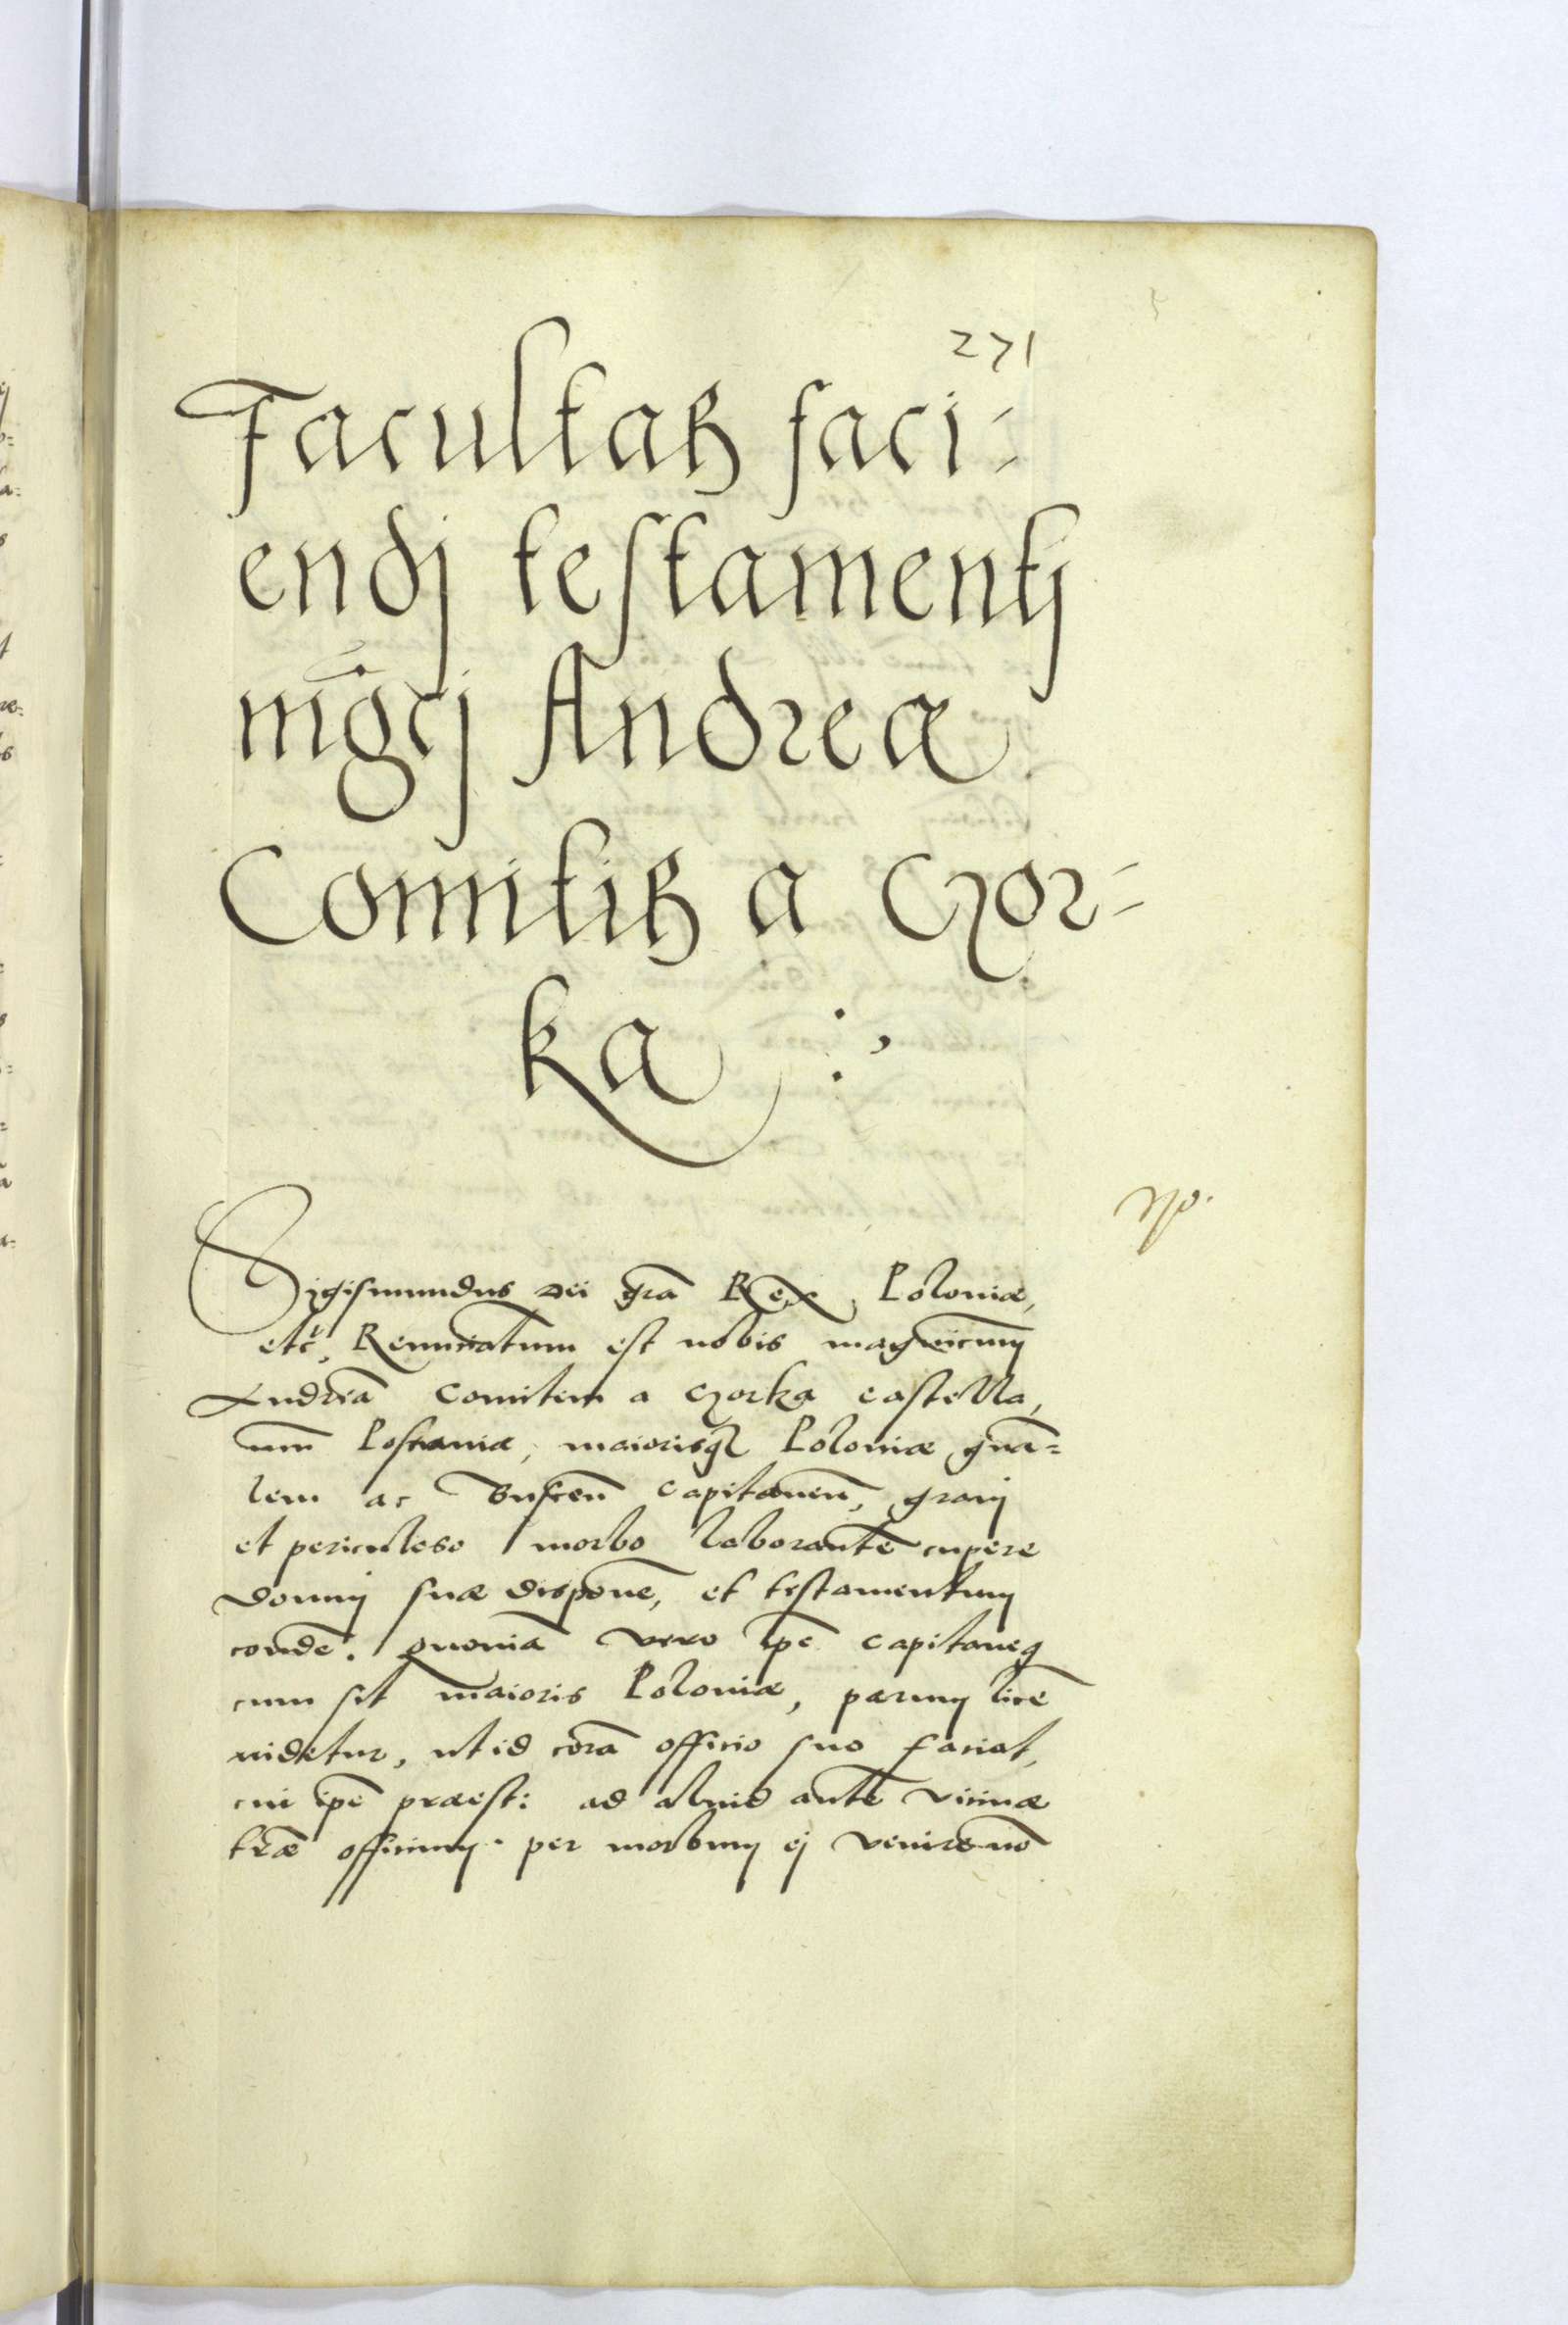 271
Facultas faci-
endj testamentj
mgcj Andreæ
Comitis a Czor-
ka
Sigismundus Dei gra Rex Poloniæ,
etc, Renunciatum est nobis magcum
Andrea comitem a Czorka castella,
num Posnaniæ, maiorisq Poloniæ gna-
lem ac Buscen capitaneu, gravj
et periculoso morbo laborante cupere
domuj suæ dispone, et testamentum
conde. quonia vero ipe capitaneq
cum sit maioris Poloniæ, parum lice
videtur, ut id cora officio suo faciat,
cui ipe præest: ad aliud ante vicinæ
træ officium per morbum ej venire no